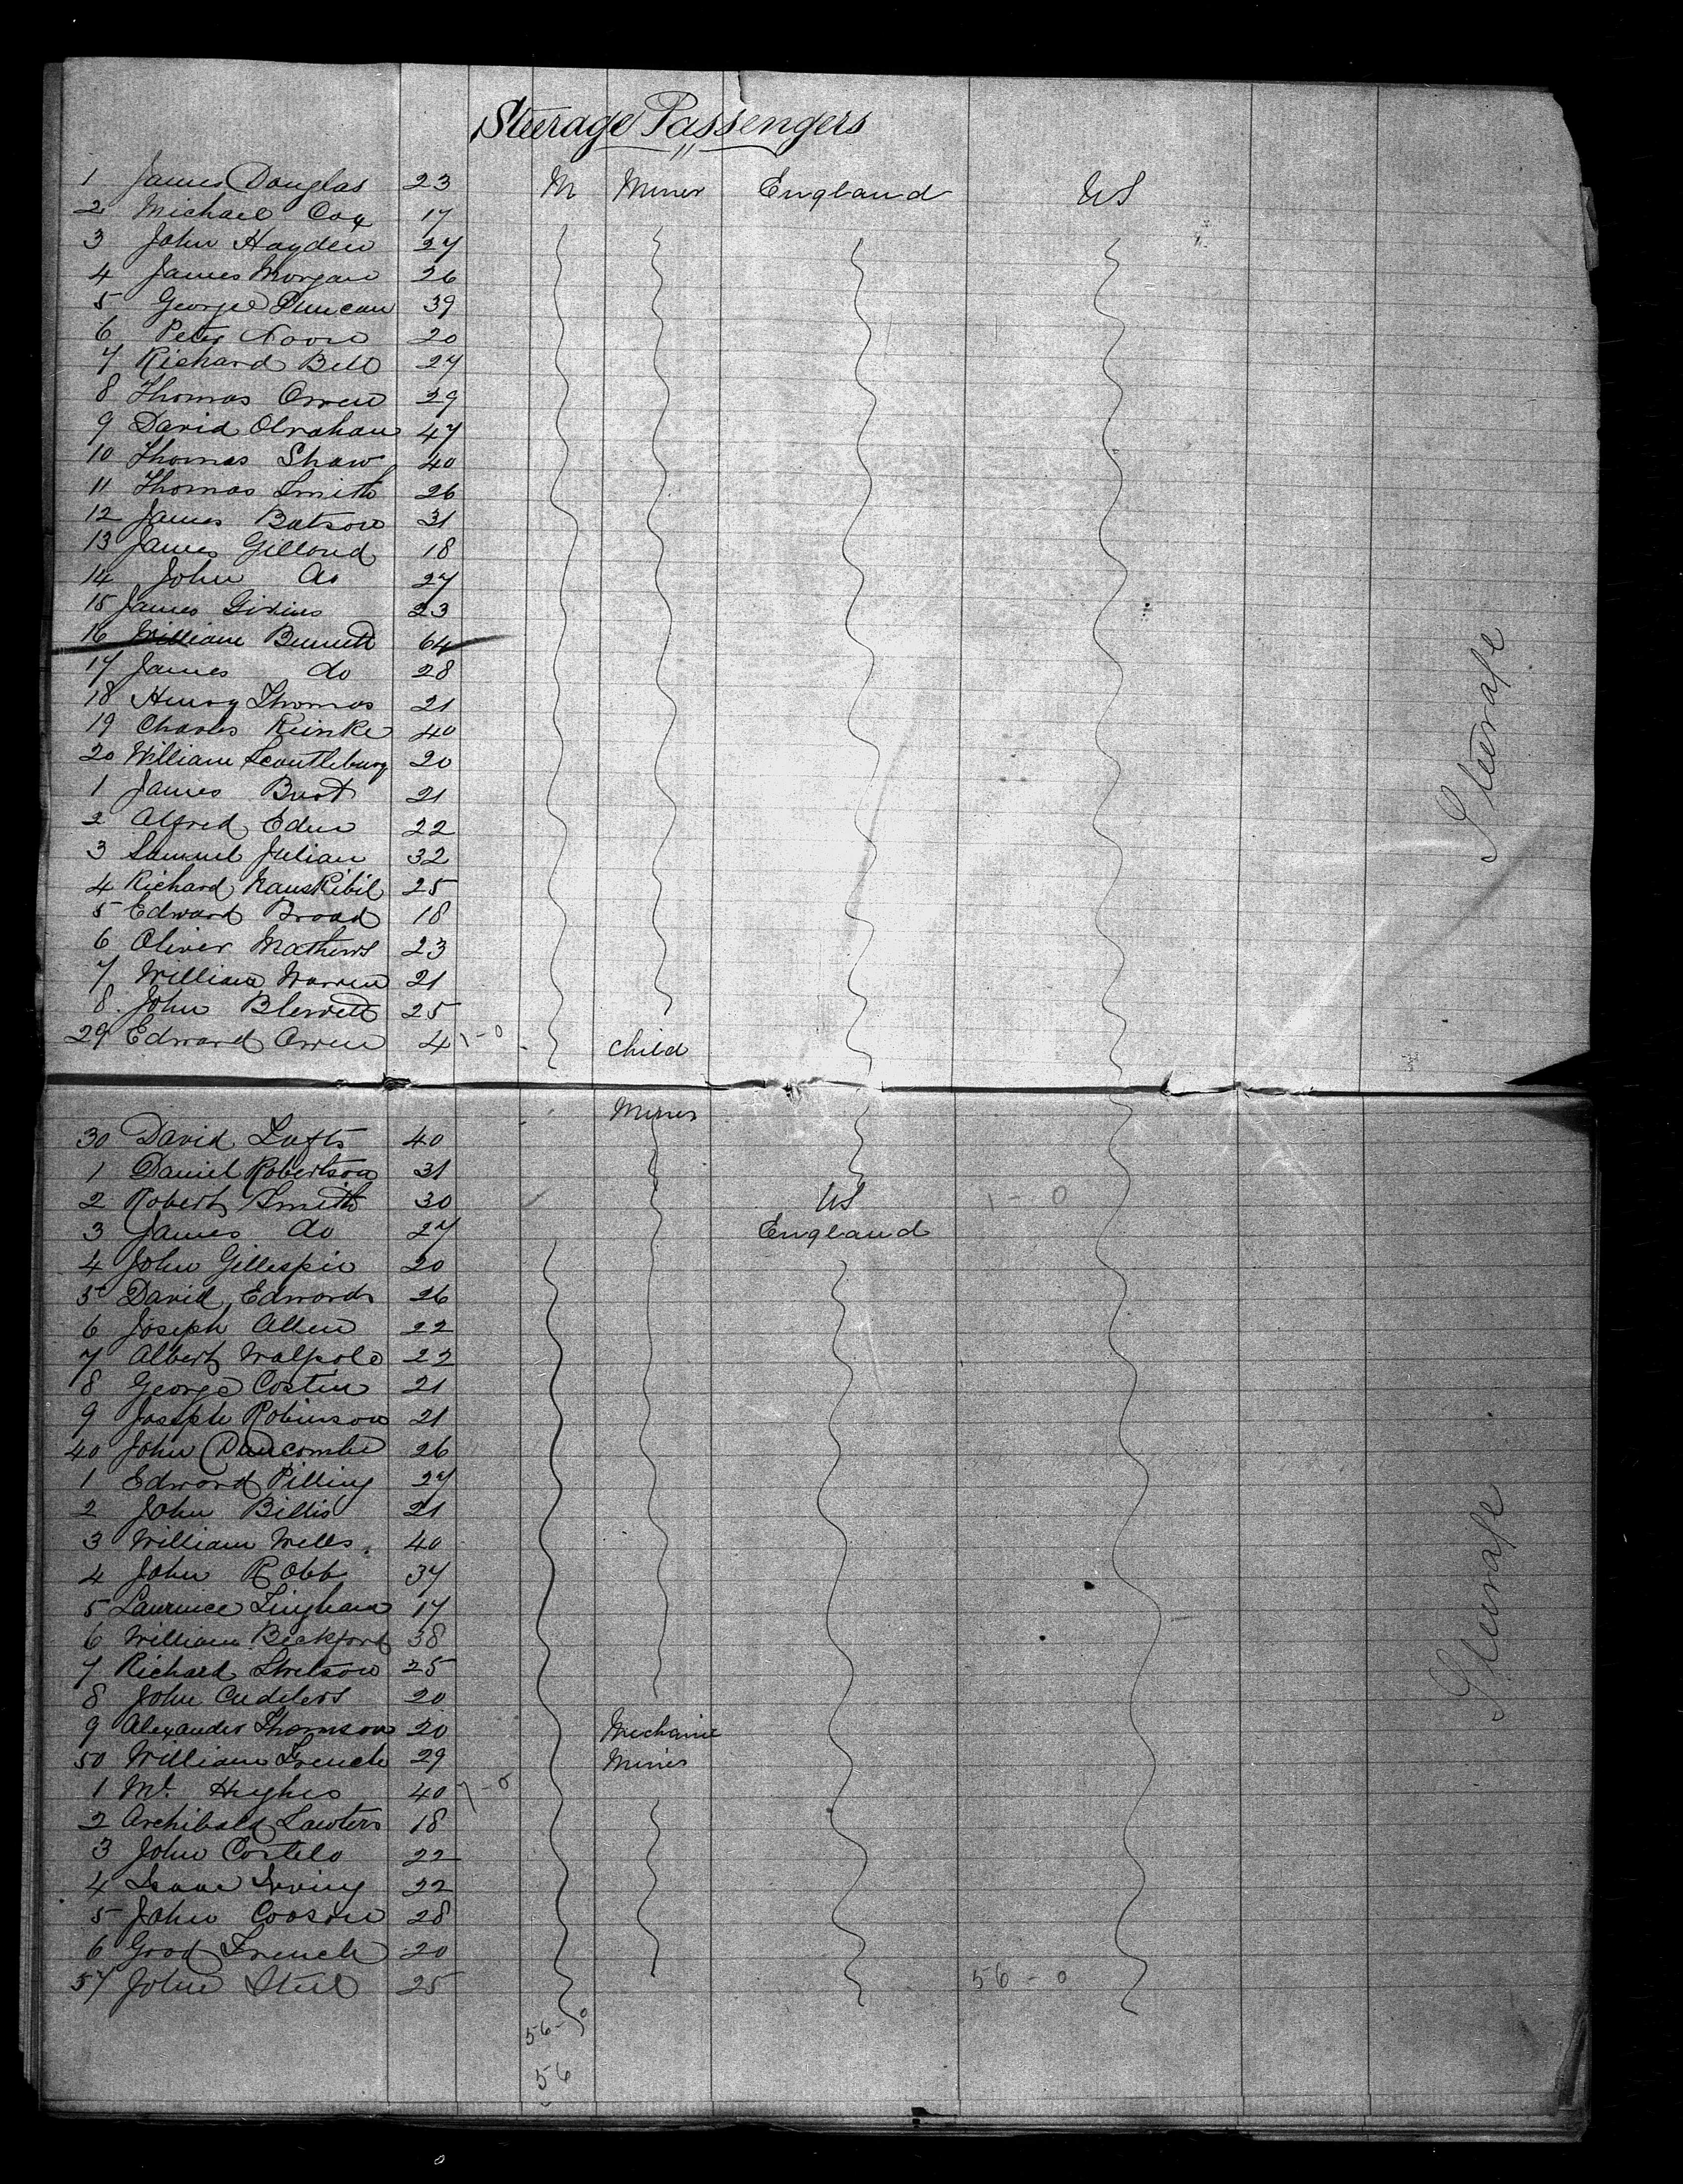 Steerage Passengers
1 James Douglas 23 M Miner England US
2 Michael Cox 17
3 John Hayden 27
4 James Morgan 26
5 George Duncan 39
6 Peter 20
7 Richard Bell 27
8 Thomas Owen 29
9 David 47
10 Thomas Shaw 40
11 Thomas Smith 26
12 James Batson 31
13 James Gilloud 18
14 John do 27
15 James 23
16 William Bennett 64
17 James do 28
18 Henry Thomas 21
19 Charles Reinke 40
20 William 20
1 James Burt 21
2 Alfred Eden 22
3 Samuel Julian 32
4 Richard 25
5 Edward Broad 18
6 Oliver Mathews 23
7 William Warren 21
8 John Blewett 25
29 Edward Owen 4 1-0 Child
Miner
30 David Lofts 40
1 Daniel Robertson 31
2 Robert Smith 30 US 1-0
3 James do 27 England
4 John Gillespie 20
5 David Edwards 26
6 Joseph Allen 22
7 Albert Walpole 22
8 George Costin 21
9 Joseph Robinson 21
40 John Duncombe 26
1 Edward Pilling 27
2 John Billis 21
3 William Wells 40
4 John Robb 37
5 Lawrence Lingham 17
6 William Bickford 38
7 Richard 25
8 John 20
9 Alexander Thomson 20 Mechanic
50 William French 29 Miner
1 Mr. Hughes 40
2 Archibald 18
3 John Costelo 22
4 Isaac Irving 22
5 John 28
6 Good French 20
57 John Steel 25 56-0
56-0
56
Steerage
Steerage